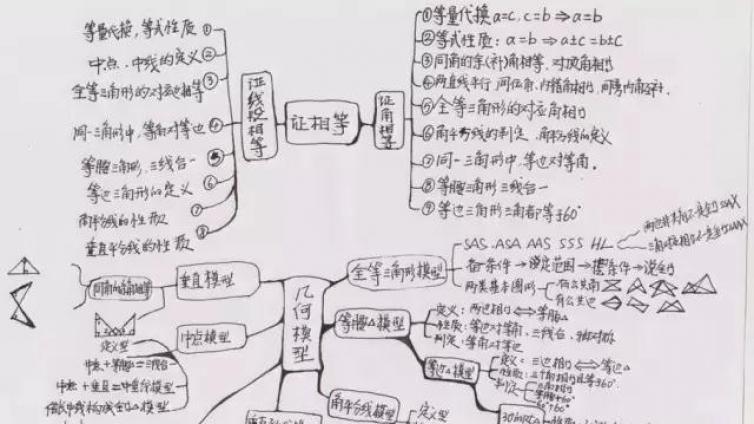 等量代换，等式性质①
中点、中线的定义②
全等三角形的对应边相等③
同一三角形中，等角对等边④
等腰三角形，三线合一⑤
等边三角形的定义⑥
角平分线的性质⑦
垂直平分线的性质⑧
证线段相等
证相等
证角相等
①等量代换 a=c, c=b ⇒ a=b
②等式性质：a=b ⇒ a±c=b±c
③同角的余(补)角相等、对顶角相等
④两直线平行，同位角、内错角相等，同旁内角互补.
⑤全等三角形的对应角相等
⑥角平分线的判定、角平分线的定义
⑦同一三角形中，等边对等角。
⑧等腰三角形三线合一
⑨等边三角形三角都等于60°
几何模型
垂直模型
同角的余角相等
中点模型
定义型
中点+等腰△=三线合一
中点+垂直=中垂线模型
倍长中线构成全等△模型
全等三角形模型
SAS ASA AAS SSS HL
备条件→说范围→摆条件→说全等
两类基本图形
有公共角
有公共边
等腰△模型
定义：两边相等⇔等腰△
性质：等边对等角、三线合一、轴对称
判定：等角对等边
等边△模型
定义：三边相等⇔等边△
性质：三个角相等且等于60°.
判定
三角相等
等腰+60°
角平分线模型
定义型
30°Rt△